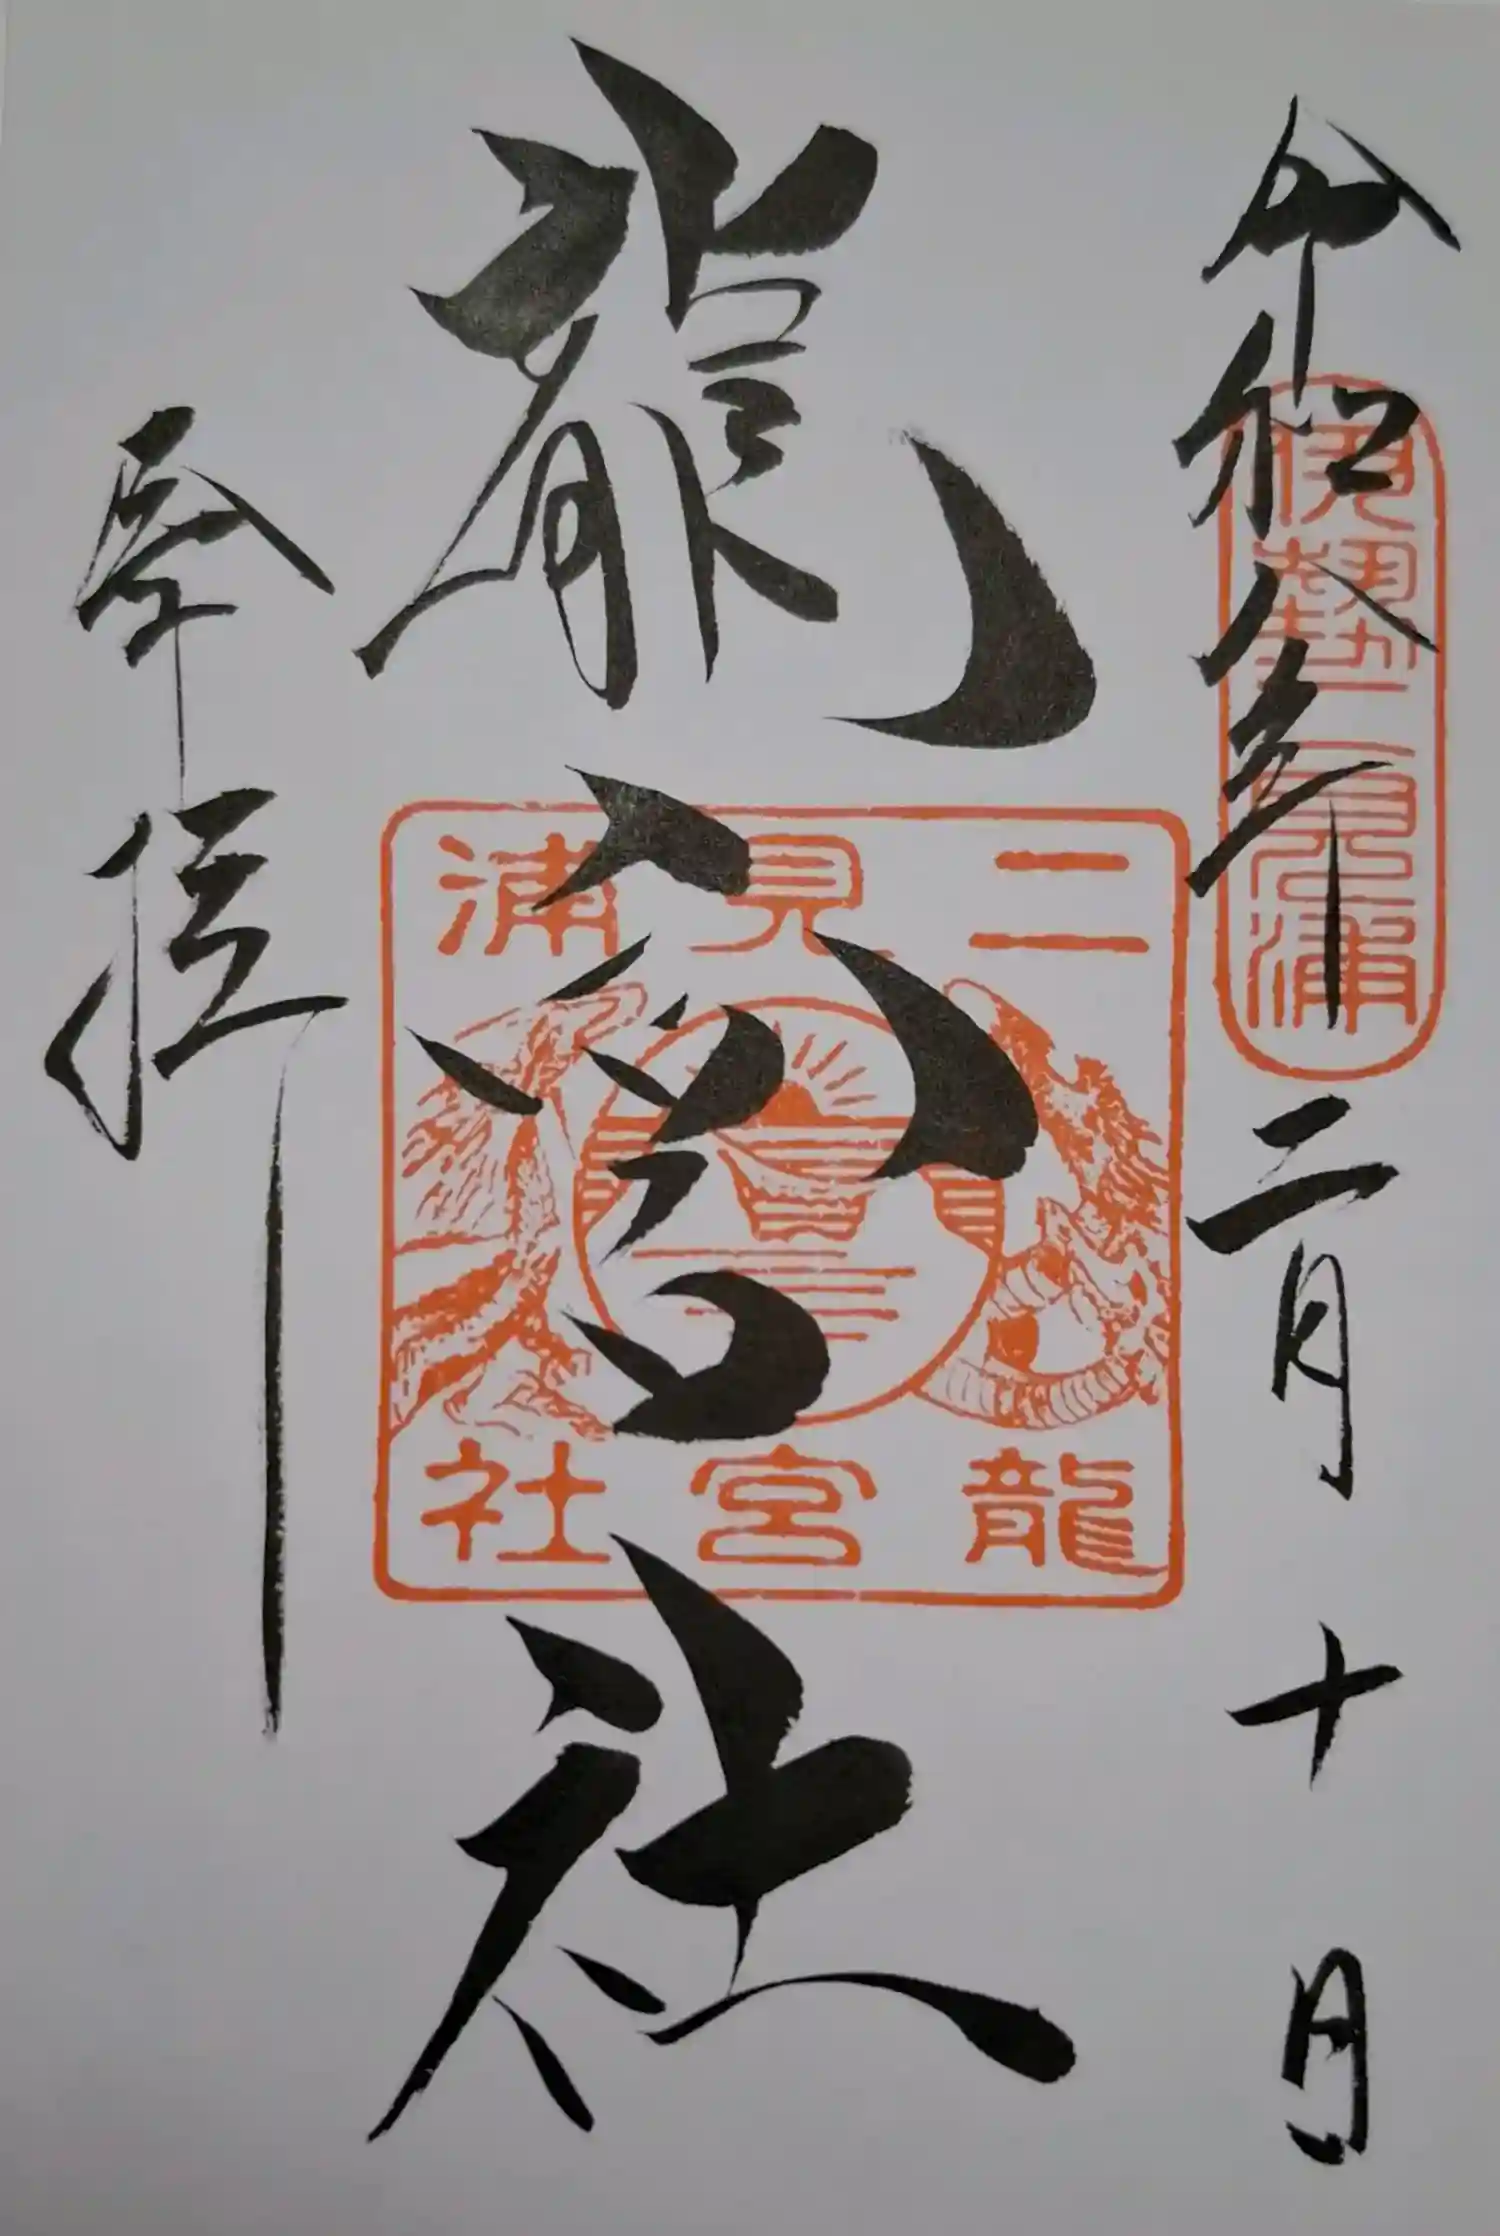 令和八年二月十日
伊勢二見浦
龍宮社
二見浦
龍宮社
奉拝